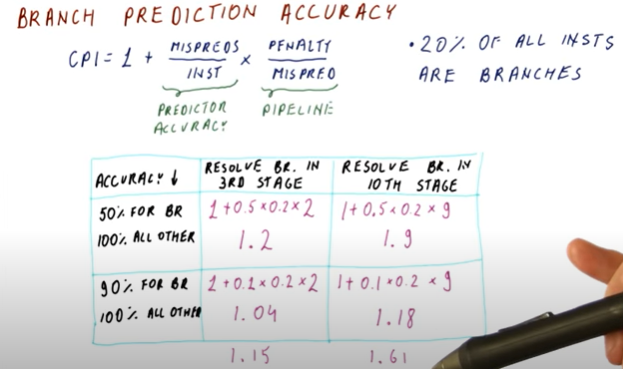 BRANCH PREDICTION ACCURACY
CPI = 1 + MISPREDS / INST × PENALTY / MISPRED
PREDICTOR ACCURACY
PIPELINE
• 20% OF ALL INSTS
ARE BRANCHES
ACCURACY ↓
RESOLVE BR. IN
3RD STAGE
RESOLVE BR. IN
10TH STAGE
50% FOR BR
100% ALL OTHER
1+0.5×0.2×2
1.2
1+0.5×0.2×9
1.9
90% FOR BR
100% ALL OTHER
1+0.1×0.2×2
1.04
1+0.1×0.2×9
1.18
1.15
1.61